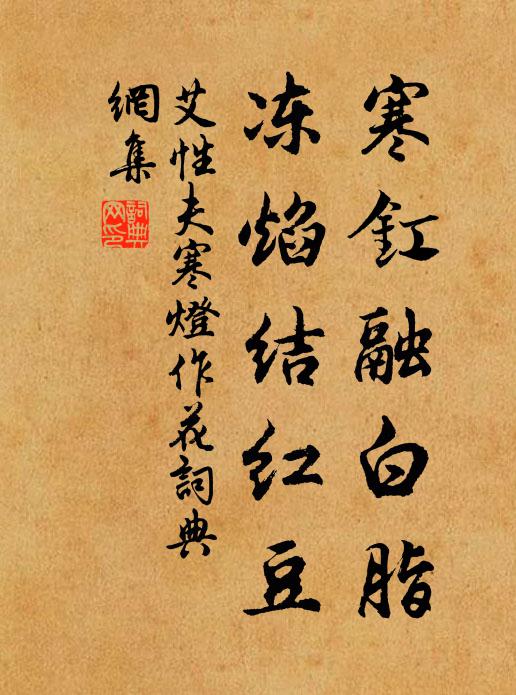 寒釭融白脂
冻焰结红豆
艾性夫寒燈作花詞典
網集
詞典
网印